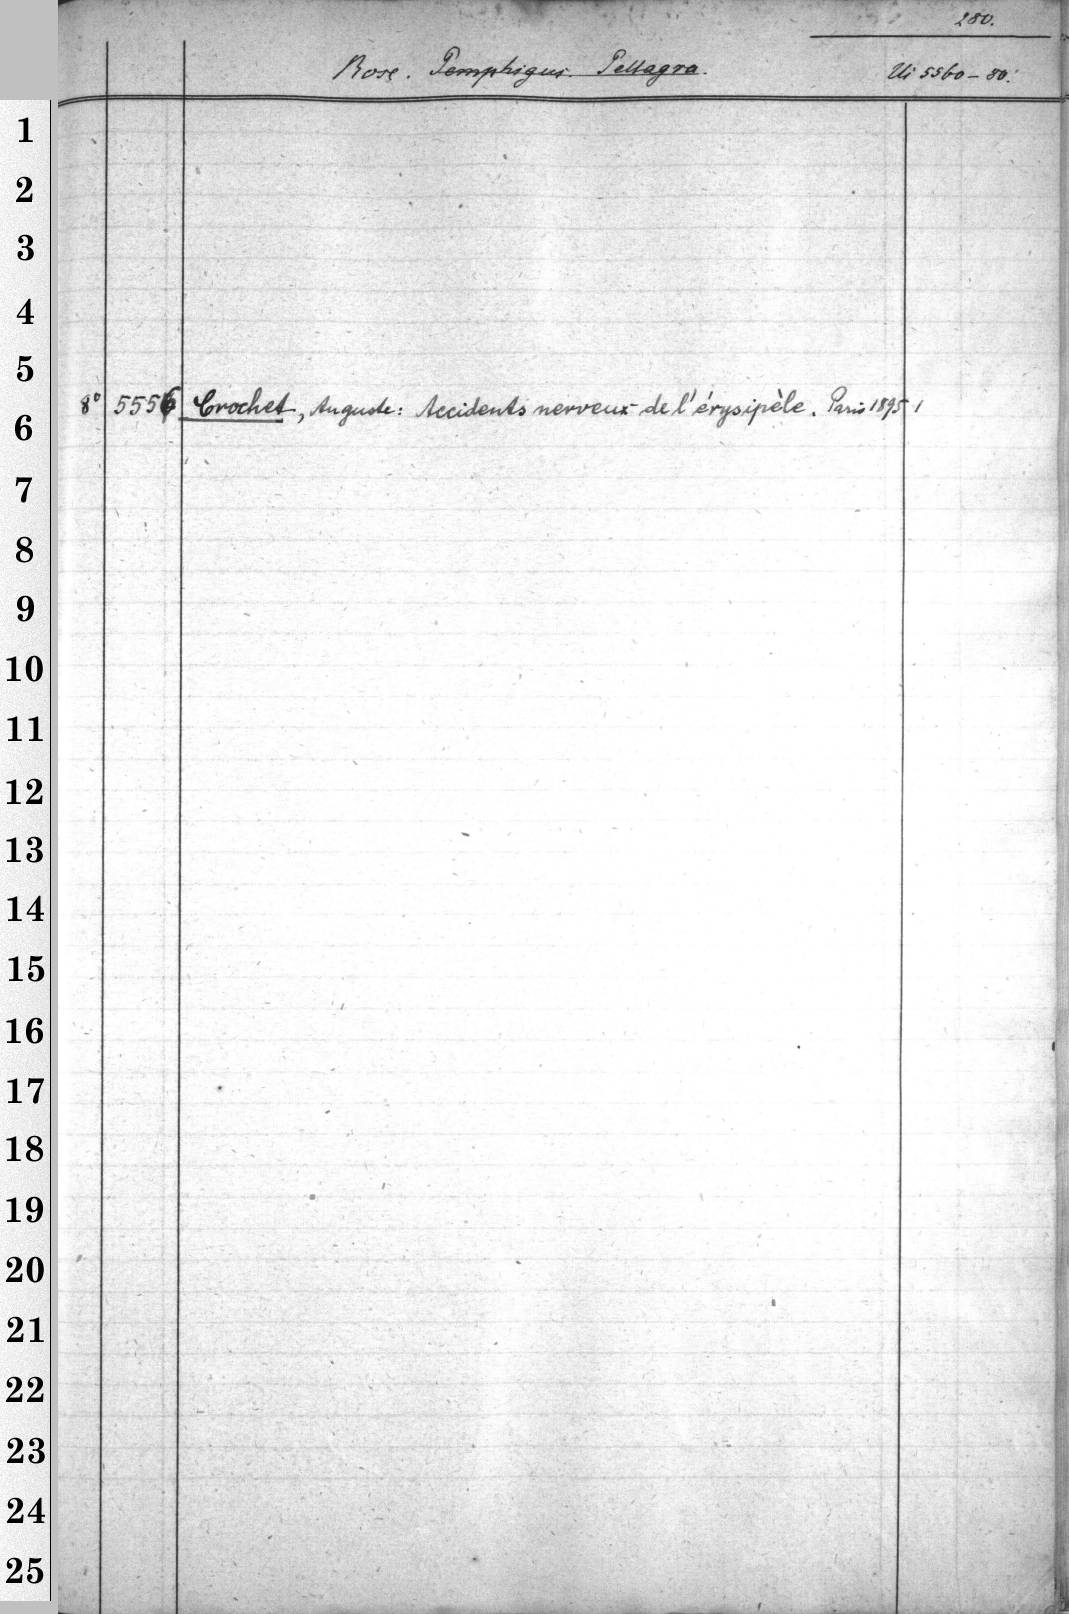 280.
Rose. Pemphigus. Pellagra.
Ui 5560-80.
1
2
3
4
5
8° 5556 Crochet, Auguste: Accidents nerveux de l'érysipèle. Paris 1895 1
6
7
8
9
10
11
12
13
14
15
16
17
18
19
20
21
22
23
24
25